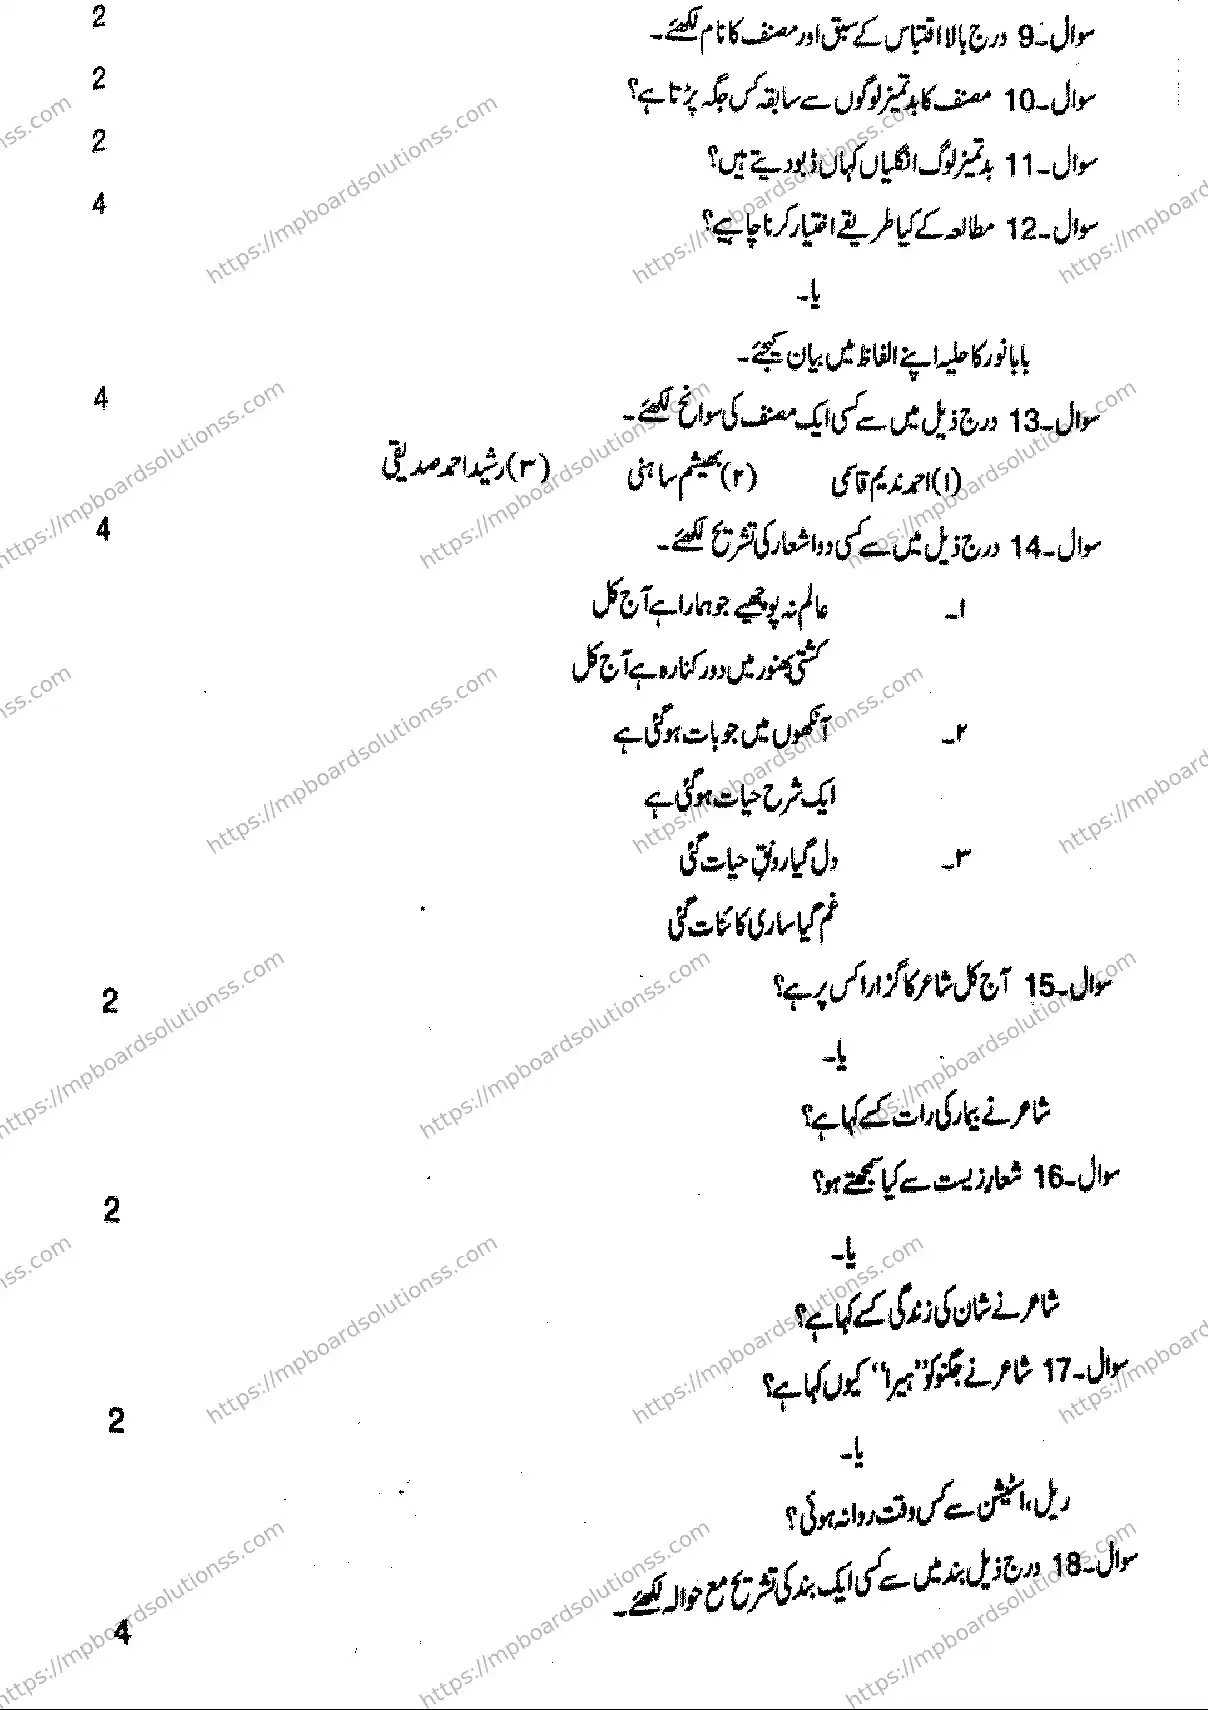 سوال۔9 درج بالا اقتباس کے سبق اور مصنف کا نام لکھئے۔ 2
سوال۔10 مصنف کا بدتمیز لوگوں سے سابقہ کس جگہ پڑتا ہے؟ 2
سوال۔11 بدتمیز لوگ انگلیاں کہاں ڈبو دیتے ہیں؟ 2
سوال۔12 مطالعہ کے کیا طریقے اختیار کرنا چاہیے؟ 4
یا۔
بابا نور کا حلیہ اپنے الفاظ میں بیان کیجئے۔
سوال۔13 درج ذیل میں سے کسی ایک مصنف کی سوانح لکھئے۔ 4
(۱) احمد ندیم قاسمی (۲) بھیشم ساہنی (۳) رشید احمد صدیقی
سوال۔14 درج ذیل میں سے کسی دو اشعار کی تشریح لکھئے۔ 4
۱۔ عالم نہ پوچھیے جو ہمارا ہے آج کل
کشتی بھنور میں دور کنارہ ہے آج کل
۲۔ آنکھوں میں جو بات ہوگئی ہے
ایک شرح حیات ہوگئی ہے
۳۔ دل گیا رونقِ حیات گئی
غم گیا ساری کائنات گئی
سوال۔15 آج کل شاعر کا گزارا کس پر ہے؟ 2
یا۔
شاعر نے بیمار کی رات کسے کہا ہے؟
سوال۔16 شعار زیست سے کیا سمجھتے ہو؟ 2
یا۔
شاعر نے شان کی زندگی کسے کہا ہے؟
سوال۔17 شاعر نے جگنو کو "ہیرا" کیوں کہا ہے؟ 2
یا۔
ریل، اسٹیشن سے کس وقت روانہ ہوئی؟
سوال۔18 درج ذیل بند میں سے کسی ایک بند کی تشریح مع حوالہ لکھئے۔ 4
https://mpboardsolutionss.com